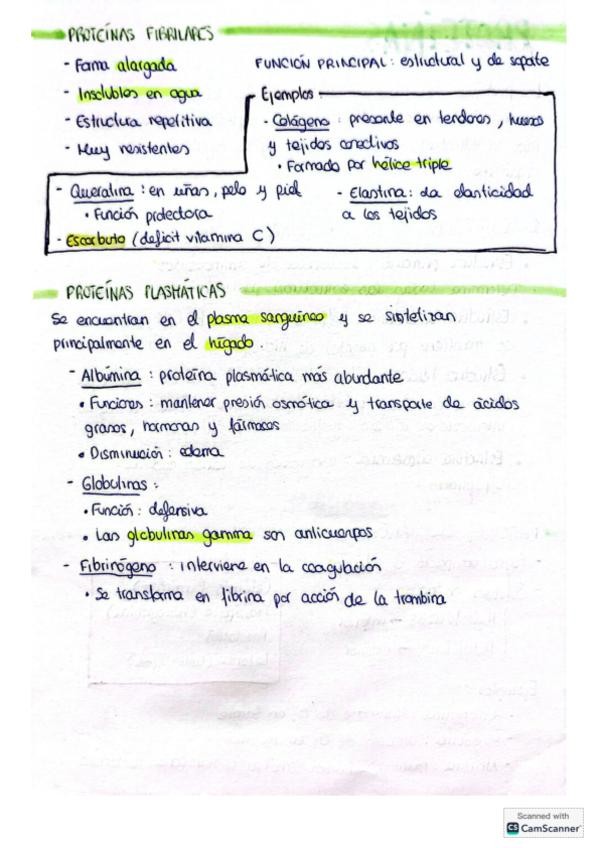 PROTEÍNAS FIBRILARES
- Forma alargada
FUNCIÓN PRINCIPAL: estructural y de soporte
- Insolubles en agua
- Estructura repetitiva
- Muy resistentes
Ejemplos
- Colágeno: presente en tendones, huesos
y tejidos conectivos
• Formado por hélice triple
- Queratina: en uñas, pelo y piel
• Función protectora
- Elastina: da elasticidad
a los tejidos
- Escorbuto (deficit vitamina C)
PROTEÍNAS PLASMÁTICAS
Se encuentran en el plasma sanguíneo y se sintetizan
principalmente en el hígado.
- Albúmina: proteína plasmática más abundante
• Funciones: mantener presión osmótica y transporte de ácidos
grasos, hormonas y fármacos
• Disminución: edema
- Globulinas:
• Función: defensiva
• Las globulinas gamma son anticuerpos
- Fibrinógeno: interviene en la coagulación
• Se transforma en fibrina por acción de la trombina
Scanned with
CS CamScanner